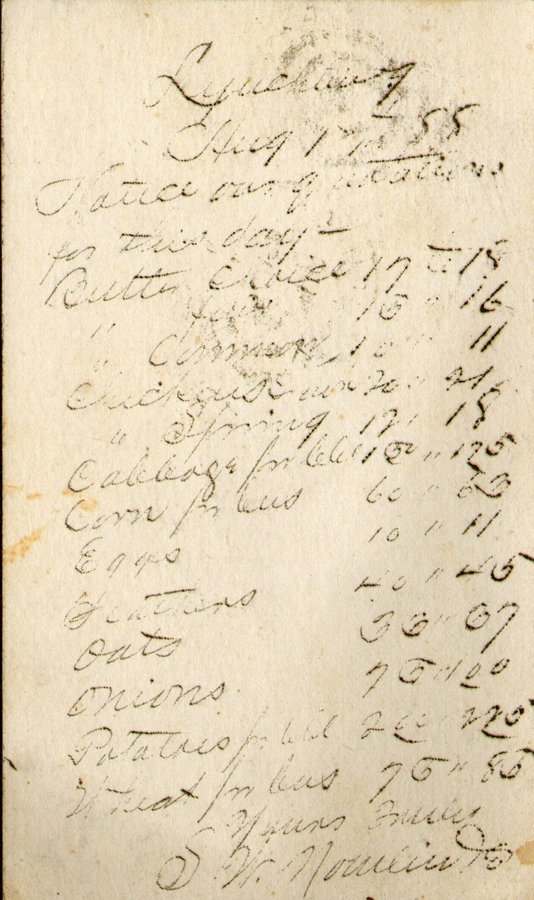 Lynchburg
Aug 17th 88
Notice our quotations
for this day-
Butter Choice 17 to 18
" fair 15 " 16
" Common 10 " 11
Chickens 20 "
" Spring 12 " 18
Cabbage pr bbl 150 " 175
Corn pr bus 60 " 63
Eggs 10 " 11
Feathers 40 " 45
Oats 35 " 37
Onions 75 " 100
Potatoes pr bbl 200 " 225
Wheat pr bus 75 " 85
Yours Truly
S W